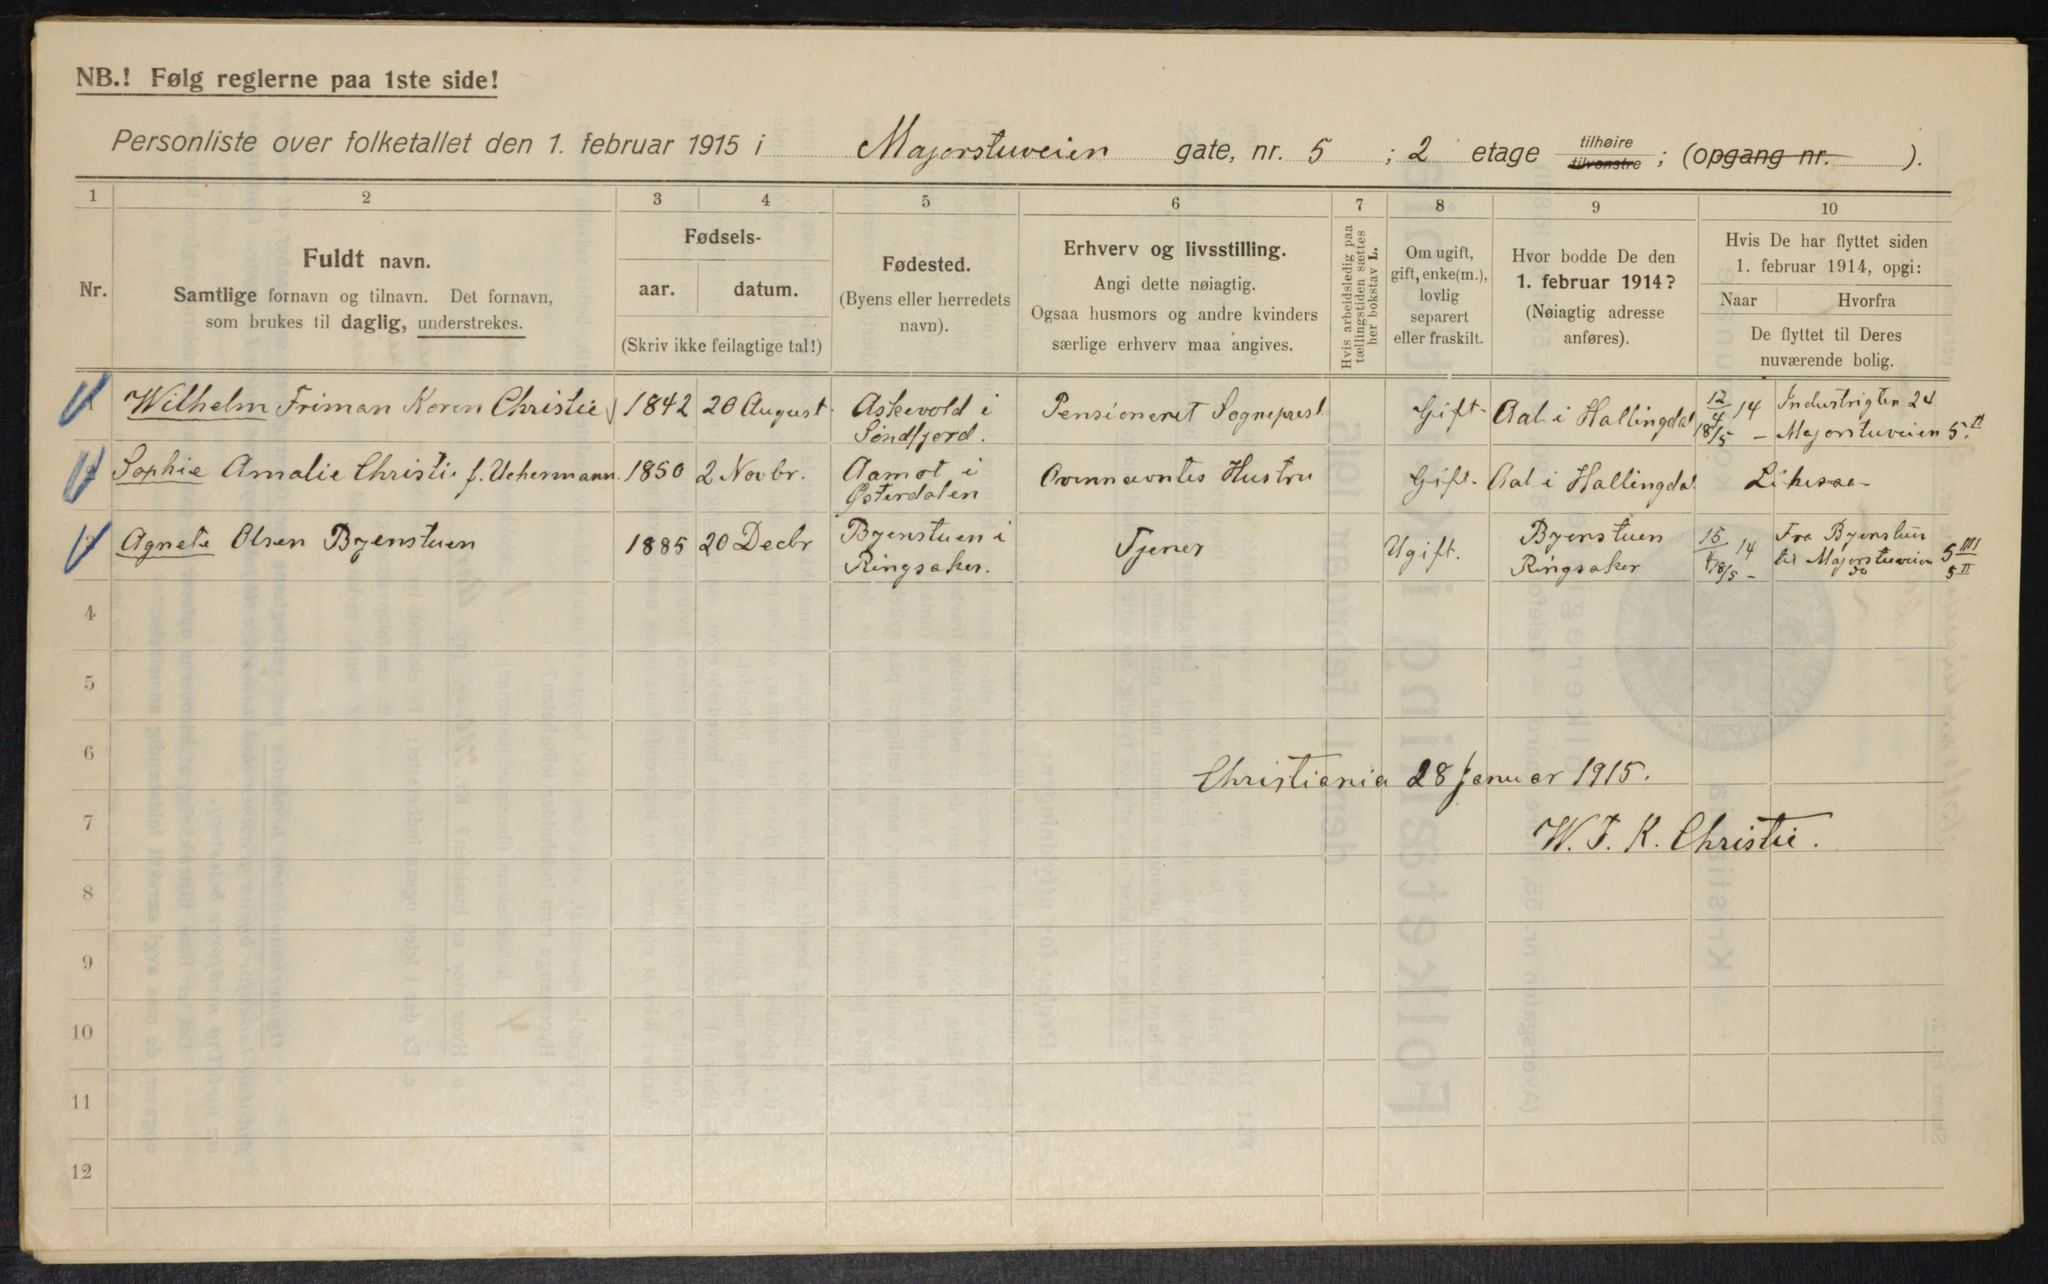 NB.! Følg reglerne paa 1ste side!
Personliste over folketallet den 1. februar 1915 i Majorstuveien gate, nr. 5 ; 2 etage tilhøire tilvenstre ; (opgang nr. ).
1 2 3 4 5 6 7 8 9 10
Nr.
Fuldt navn.
Samtlige fornavn og tilnavn. Det fornavn,
som brukes til daglig, understrekes.
Fødsels-
aar. datum.
(Skriv ikke feilagtige tal!)
Fødested.
(Byens eller herredets
navn).
Erhverv og livsstilling.
Angi dette nøiagtig.
Ogsaa husmors og andre kvinders
særlige erhverv maa angives.
Hvis arbeidsledig paa
tællingstiden sættes
her bokstav L.
Om ugift,
gift, enke(m.),
lovlig
separert
eller fraskilt.
Hvor bodde De den
1. februar 1914?
(Nøiagtig adresse
anføres).
Hvis De har flyttet siden
1. februar 1914, opgi:
Naar Hvorfra
De flyttet til Deres
nuværende bolig.
Wilhelm Friman Koren Christie 1842 20 August Askevold i Pensioneret Sogneprest Gift Aal i Hallingdal 12/4 14 Industrigten 24
Søndfjord. 18/5 – Majorstuveien 5 II
Sophie Amalie Christie f. Uchermann. 1850 2 Novbr. Aamot i Ovennævntes Hustru Gift Aal i Hallingdal Likesaa
Østerdalen
Agnete Olsen Byenstuen 1885 20 Decbr Byenstuen i Tjener Ugift. Byenstuen 15/4 14 Fra Byenstuen
Ringsaker. Ringsaker 18/5 – til Majorstuveien 5 III
do 5 II
4
5
6
Christiania 28 Januar 1915.
7
W. F. K. Christie.
8
9
10
11
12